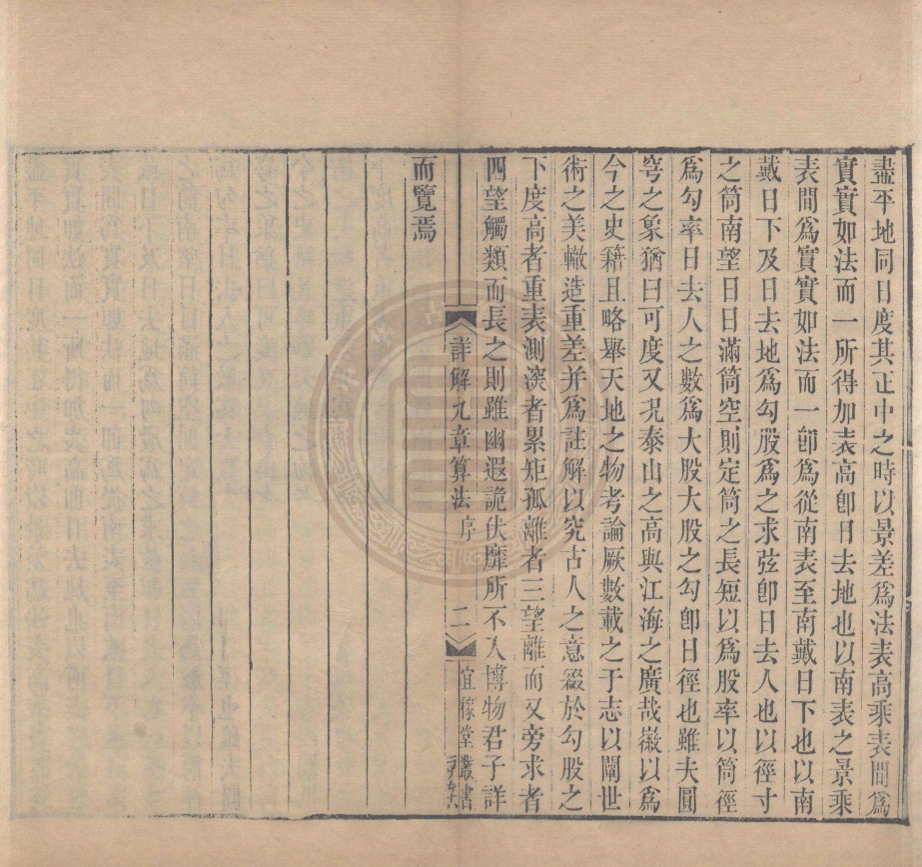 盡平地同日度其正中之時以景差爲法表高乘表間爲
實實如法而一所得加表高卽日去地也以南表之景乘
表間爲實實如法而一卽爲從南表至南戴日下也以南
戴日下及日去地爲勾股爲之求弦卽日去人也以徑寸
之筒南望日日滿筒空則定筒之長短以爲股率以筒徑
爲勾率日去人之數爲大股大股之勾卽日徑也雖夫圓
穹之象猶曰可度又况泰山之高與江海之廣哉徽以爲
今之史籍且略舉天地之物考論厥數載之于志以闡世
術之美輙造重差并爲註解以究古人之意綴於勾股之
下度高者重表測深者累矩孤離者三望離而又旁求者
四望觸類而長之則雖幽遐詭伏靡所不入博物君子詳
而覽焉
詳解九章算法 序 二 宜稼堂叢書